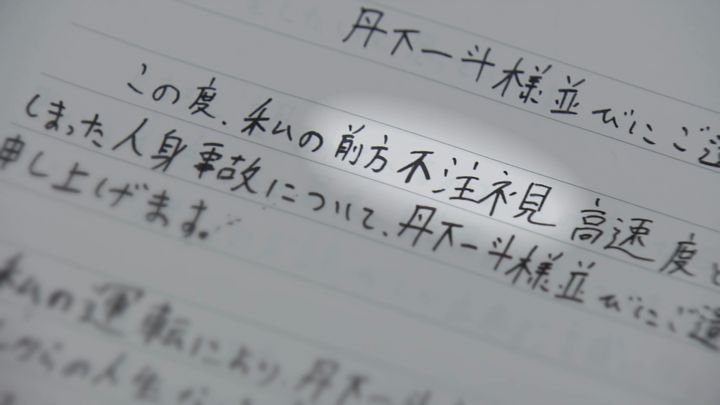 丹下一斗様並びにご遺
この度、私の前方不注視高速度と
しまった人身事故について、丹下一斗様並びにご遺
申し上げます。
私の運転により、丹下一斗様
からの人生